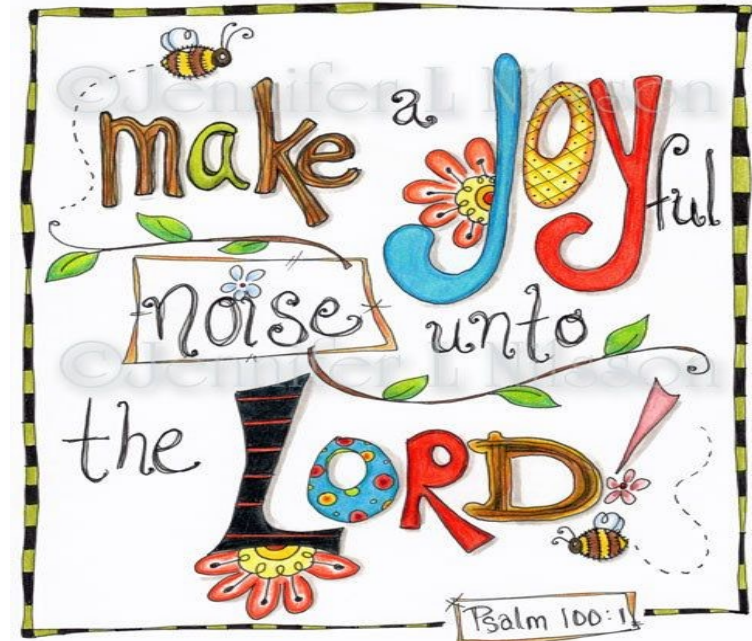 ©Jennifer L Nilsson
make a JOYful
noise unto
©Jennifer L Nilsson
the LORD!
Psalm 100:1